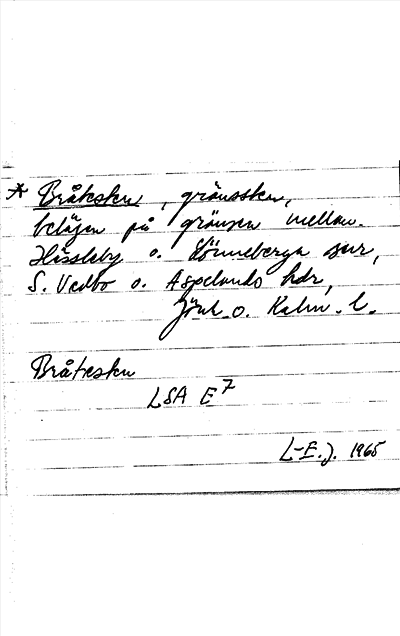 * Bråtesten, gränssten,
belägen på gränsen mellan
Hässleby o. Lönneberga snr,
S. Vedbo o. Aspelands hdr,
Jönk. o. Kalm. l.
Bråtesten
LSA E 7
L-E.J. 1965